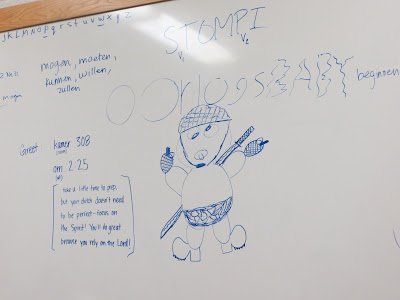 J K L M N O P q r s t u v w x y z
STOMPI
V₁ V₂
mogen, moeten,
kunnen, willen,
zullen
mogen
oorlogsBABY beginnen
Greet kamer 308
(room)
om 2:25
(at)
take a little time to prep,
but your dutch doesn't need
to be perfect - focus on
the Spirit! You'll do great
because you rely on the Lord!